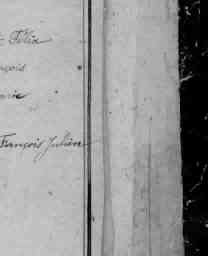 Félix
nçois
arie
François Julien